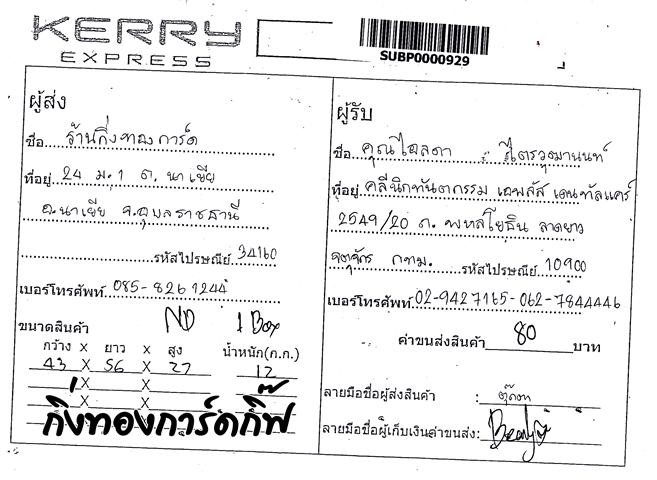 KERRY
EXPRESS
SUBP0000929
ผู้ส่ง
ชื่อ ร้านกิ่งทองการ์ด
ที่อยู่ 24 ม.1 ต. นาเยีย
อ.นาเยีย จ.อุบลราชธานี
รหัสไปรษณีย์ 34160
เบอร์โทรศัพท์ 085-8261244
ขนาดสินค้า ND 1 Box
กว้าง x ยาว x สูง น้ำหนัก(ก.ก.)
43 X 56 X 27 12
X
X
กิ่งทองการ์ดกิ๊ฟ
ผู้รับ
ชื่อ คุณไอลดา ไตรวุฒานนท์
ที่อยู่ คลีนิกทันตกรรม เอพลัส เดนทัลแคร์
2549/20 ถ. พหลโยธิน ลาดยาว
จตุจักร กทม. รหัสไปรษณีย์ 10900
เบอร์โทรศัพท์ 02-9427165-062-7844446
ค่าขนส่งสินค้า 80 บาท
ลายมือชื่อผู้ส่งสินค้า : ตุ๊กตา
ลายมือชื่อผู้เก็บเงินค่าขนส่ง: